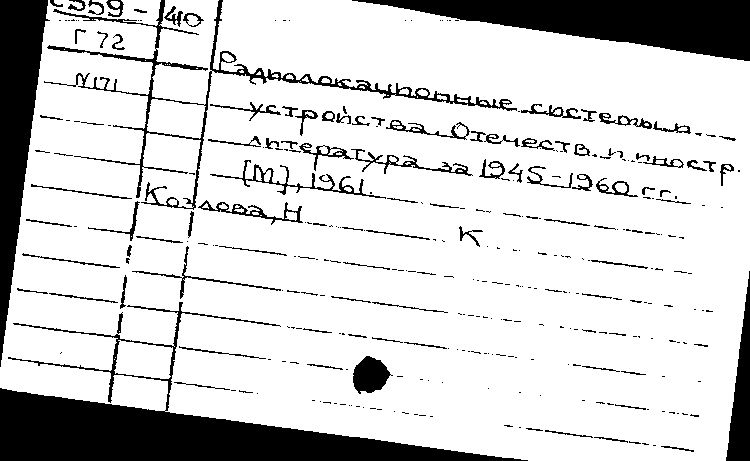 с559-410
Г 72
N171
Радиолокационные системы и
устройства. Отечеств. и иностр.
литература за 1945-1960 гг.
[М.], 1961.
Козлова, Н
К